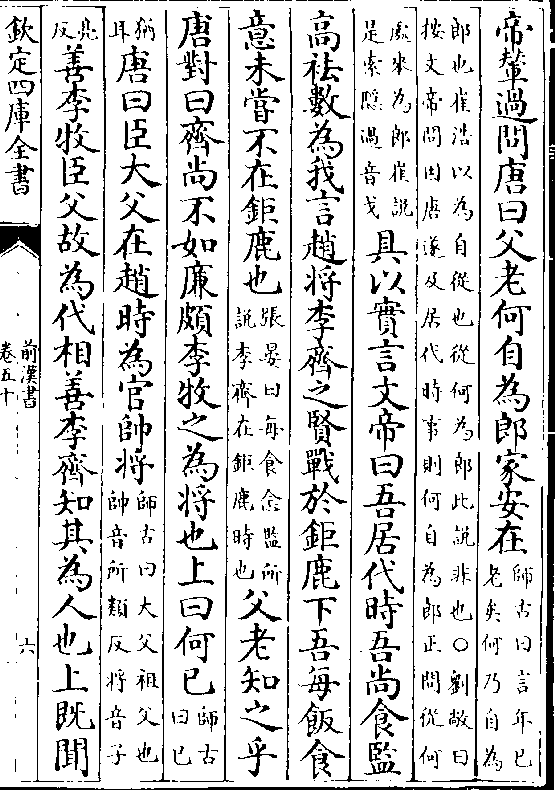 帝輦過問唐曰父老何自為郎家安在師古曰言年已老矣何乃自為
郎也崔浩以為自從也從何為郎此說非也○劉敞曰按文帝問因唐遂及居代時事則何自為郎正問從何
處來為郎崔說是索隱過音戈具以實言文帝曰吾居代時吾尚食監
高祛數為我言趙將李齊之賢戰於鉅鹿下吾每飯食
意未嘗不在鉅鹿也張晏曰每食念監所說李齊在鉅鹿時也父老知之乎
唐對曰齊尚不如廉頗李牧之為將也上曰何已師古曰已
猶耳唐曰臣大父在趙時為官帥將師古曰大父祖父也帥音所類反將音子
亮反善李牧臣父故為代相善李齊知其為人也上既聞
欽定四庫全書
前漢書
卷五十
六